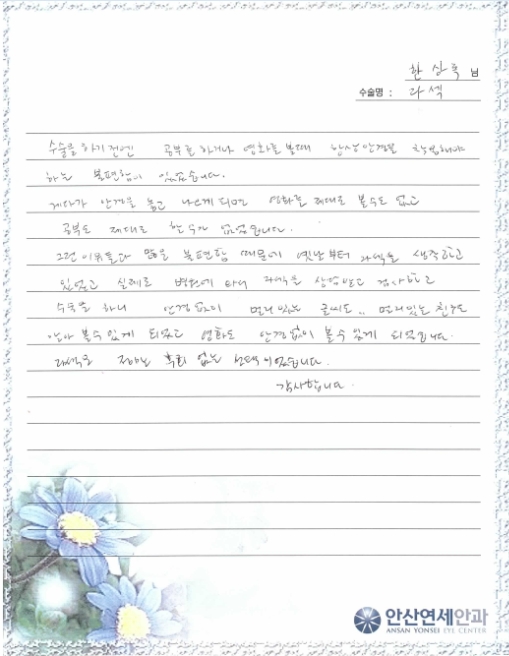 한상욱 님
수술명 : 라섹
수술을 하기 전엔 공부를 하거나 영화를 볼때 항상 안경을 착용해야
하는 불편함이 있었습니다.
게다가 안경을 놓고 나오게 되면 영화를 제대로 볼수도 없고
공부도 제대로 할수가 없었습니다.
그런 이유들과 많은 불편함 때문에 옛날부터 라섹을 생각하고
있었고 실제로 병원에 와서 라섹을 상담받고 검사하고
수술을 하니 안경없이 멀리있는 글씨도.. 멀리있는 친구도
알아 볼수 있게 되었고 영화도 안경없이 볼수 있게 되었습니다.
라섹은 저에게는 후회 없는 선택이었습니다.
감사합니다.
안산연세안과
ANSAN YONSEI EYE CENTER